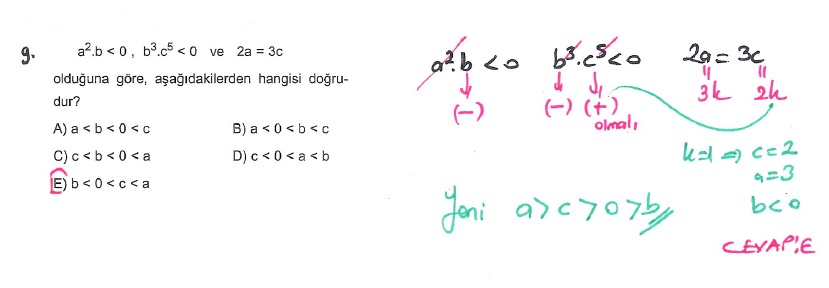 9. a².b < 0 , b³.c⁵ < 0 ve 2a = 3c
olduğuna göre, aşağıdakilerden hangisi doğru-
dur?
A) a < b < 0 < c B) a < 0 < b < c
C) c < b < 0 < a D) c < 0 < a < b
E) b < 0 < c < a
a².b < 0 b³.c⁵ < 0 2a = 3c
(-) (-) (+) 3k 2k
olmalı
k=1 ⇒ c=2
a=3
b<0
Yani a > c > 0 > b
CEVAP: E